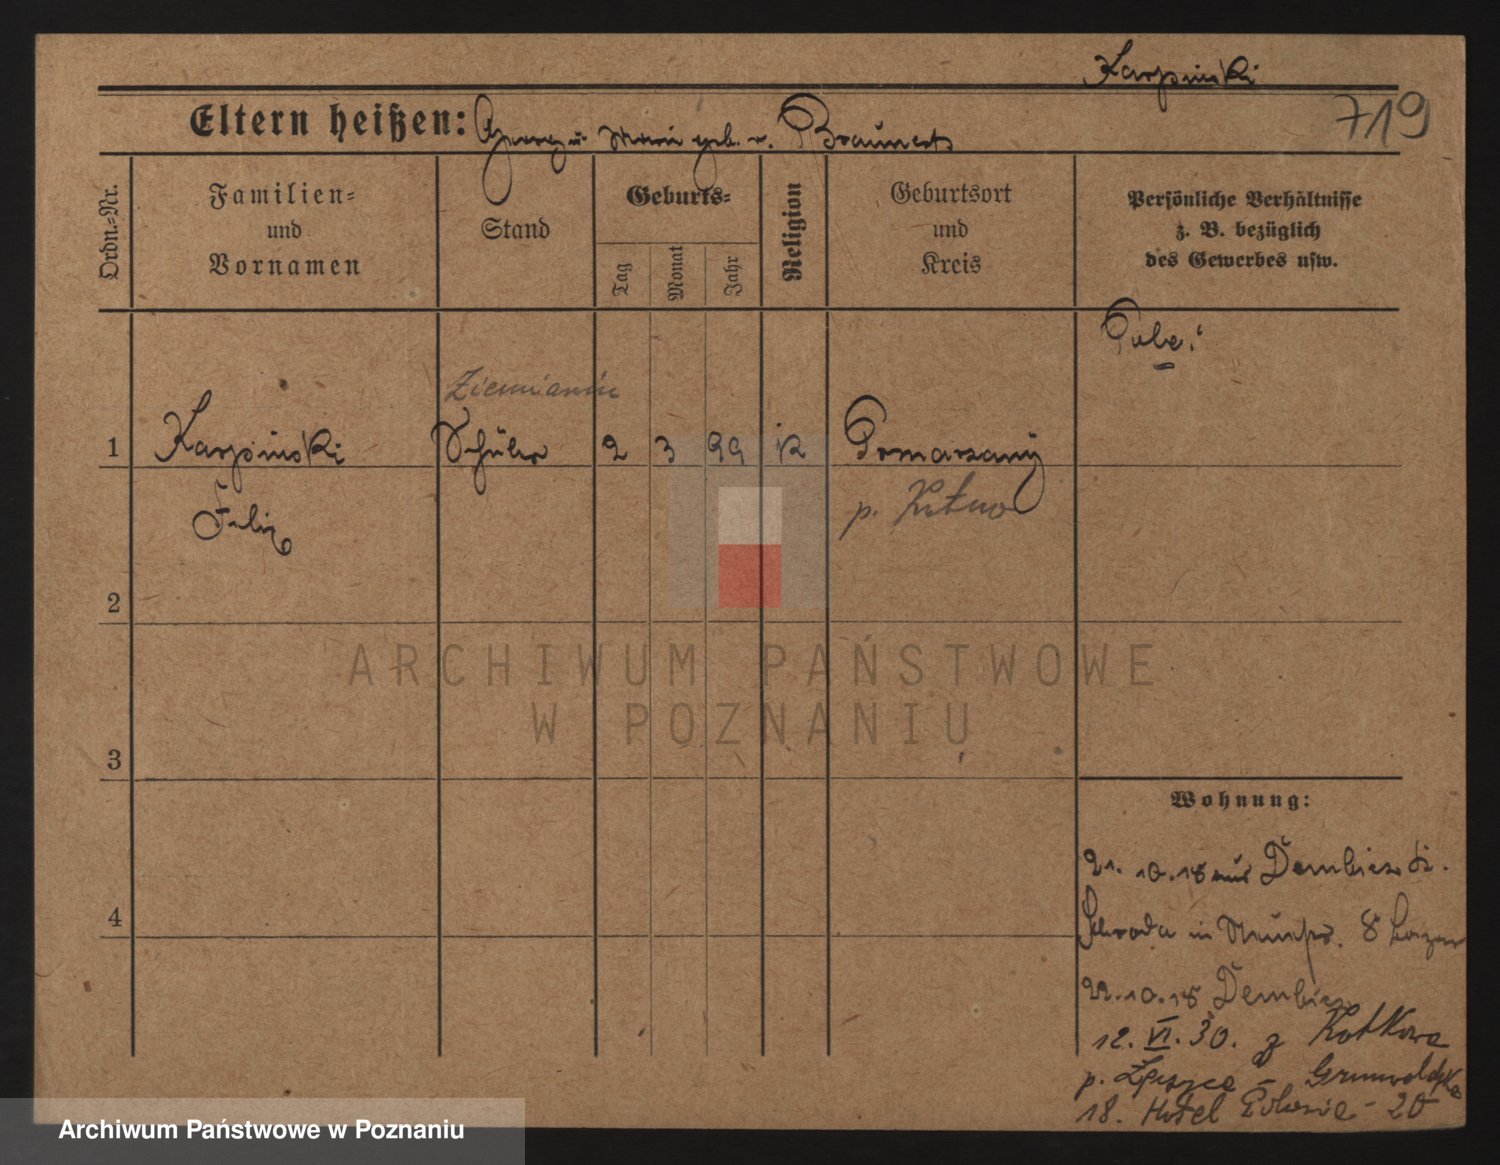 Karpinski
719
Eltern heißen: Georg u. Marie geb. v. Braunek
Ordn.=Nr.
Familien=
und
Vornamen
Stand
Geburts=
Tag
Monat
Jahr
Religion
Geburtsort
und
Kreis
Persönliche Verhältnisse
z. B. bezüglich
des Gewerbes usw.
Pole!
Ziemianin
1 Karpinski Schüler 2 3 99 K Pomarzany
Felix p. Kutno
2
3
4
Wohnung:
21. 10. 18 aus Dembicz Kr.
Schroda in 8
22. 10. 18 Dembicz
12. VI. 30. z Kotkowa
p. – Grunwaldzka
18. Hotel Polonia – 20
ARCHIWUM PAŃSTWOWE
W POZNANIU
Archiwum Państwowe w Poznaniu